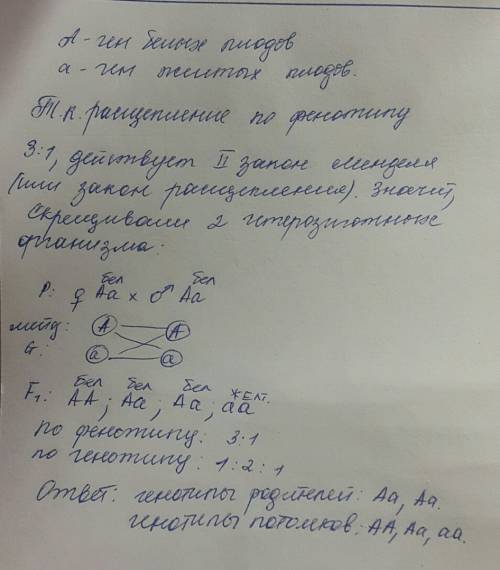 А - ген белых плодов
а - ген желтых плодов.
Т.к. расщепление по фенотипу
3:1, действует II закон Менделя
(или закон расщепления). Значит,
скрещивали 2 гетерозиготных
организма:
бел бел
P: ♀ Aa × ♂ Aa
мейд: A A
G: a a
бел бел бел желт.
F₁: AA; Aa; Aa; aa
по фенотипу: 3:1
по генотипу: 1:2:1
Ответ: генотипы родителей: Aa, Aa.
генотипы потомков: AA, Aa, aa.